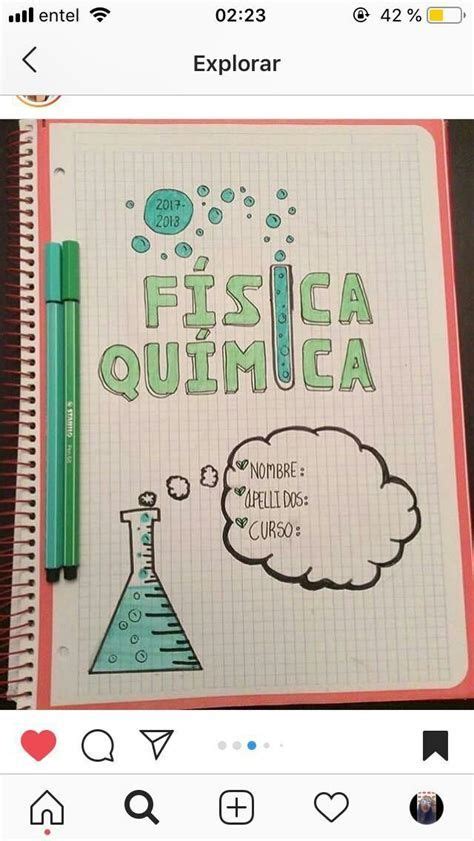 entel 02:23 42 %
Explorar
2017-
2018
FÍSICA
QUÍMICA
NOMBRE:
APELLIDOS:
CURSO:
STABILO